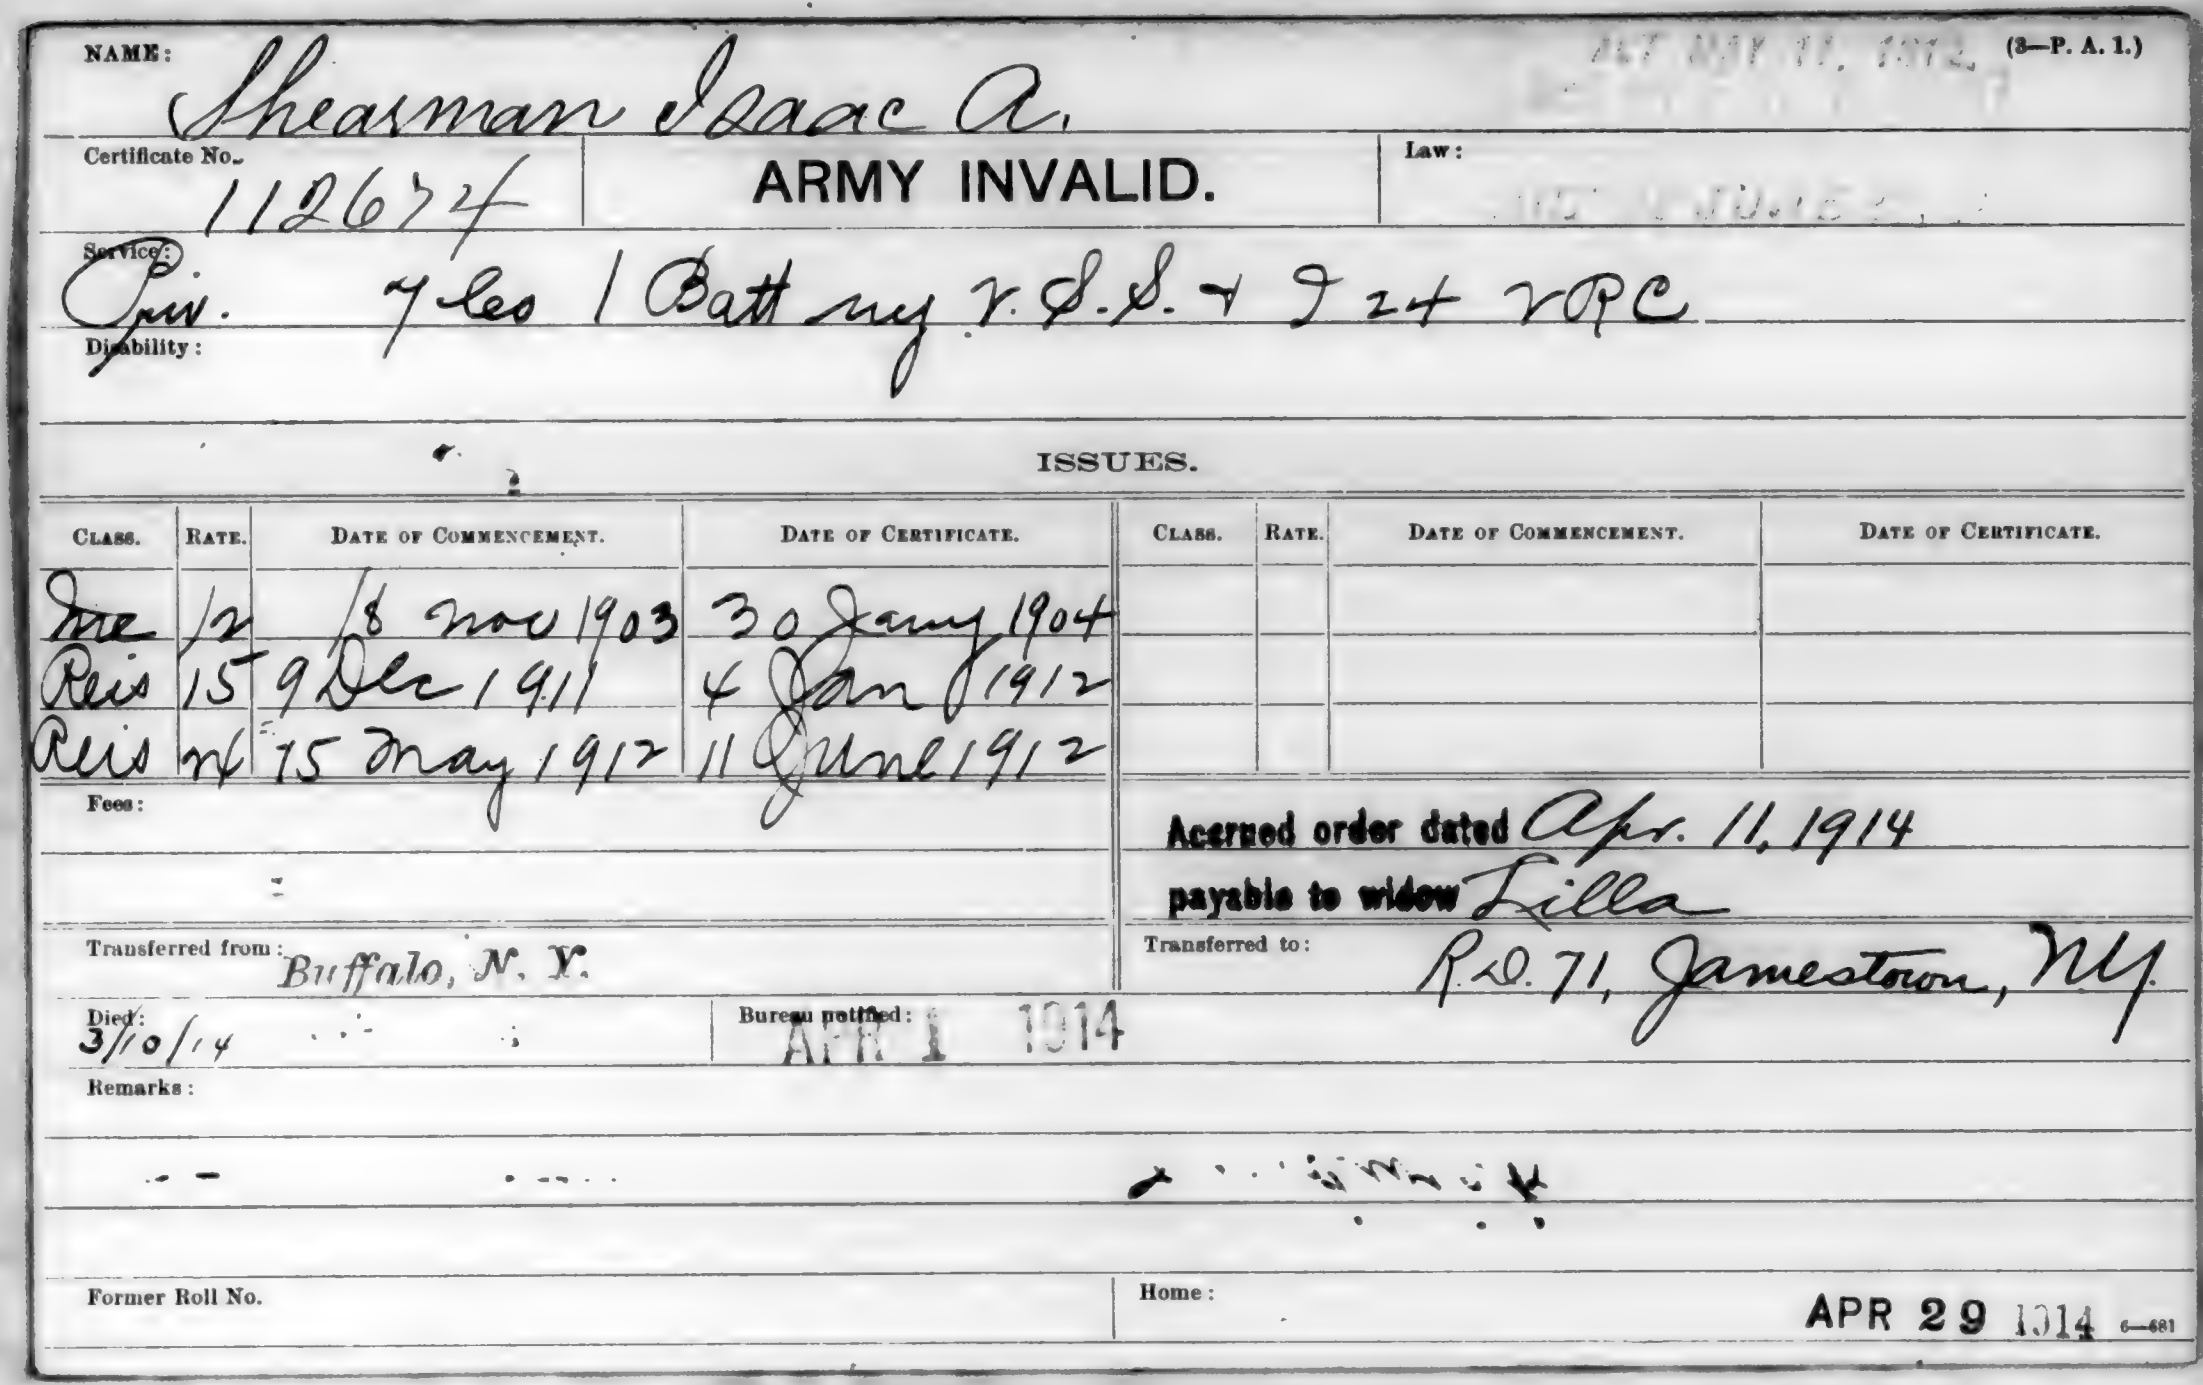 NAME: (3—P. A. 1.)
ACT MAY 11, 1912.
Shearman Isaac A.
Certificate No. ARMY INVALID. Law:
112674
Service:
Priv. 7 Co 1 Batt NY V.S.S. & I 24 VRC
Disability:
ISSUES.
CLASS. RATE. DATE OF COMMENCEMENT. DATE OF CERTIFICATE. CLASS. RATE. DATE OF COMMENCEMENT. DATE OF CERTIFICATE.
Inc 12 18 Nov 1903 30 Jany 1904
Reis 15 9 Dec 1911 4 Jan 1912
Reis 15 May 1912 11 June 1912
Fees:
Accrued order dated Apr. 11, 1914
payable to widow Lilla
Transferred from: Buffalo, N. Y. Transferred to: R.D. 71, Jamestown, NY.
Died: 3/10/14 Bureau notified: APR 1 1914
Remarks:
Former Roll No. Home:
APR 29 1914 6—681